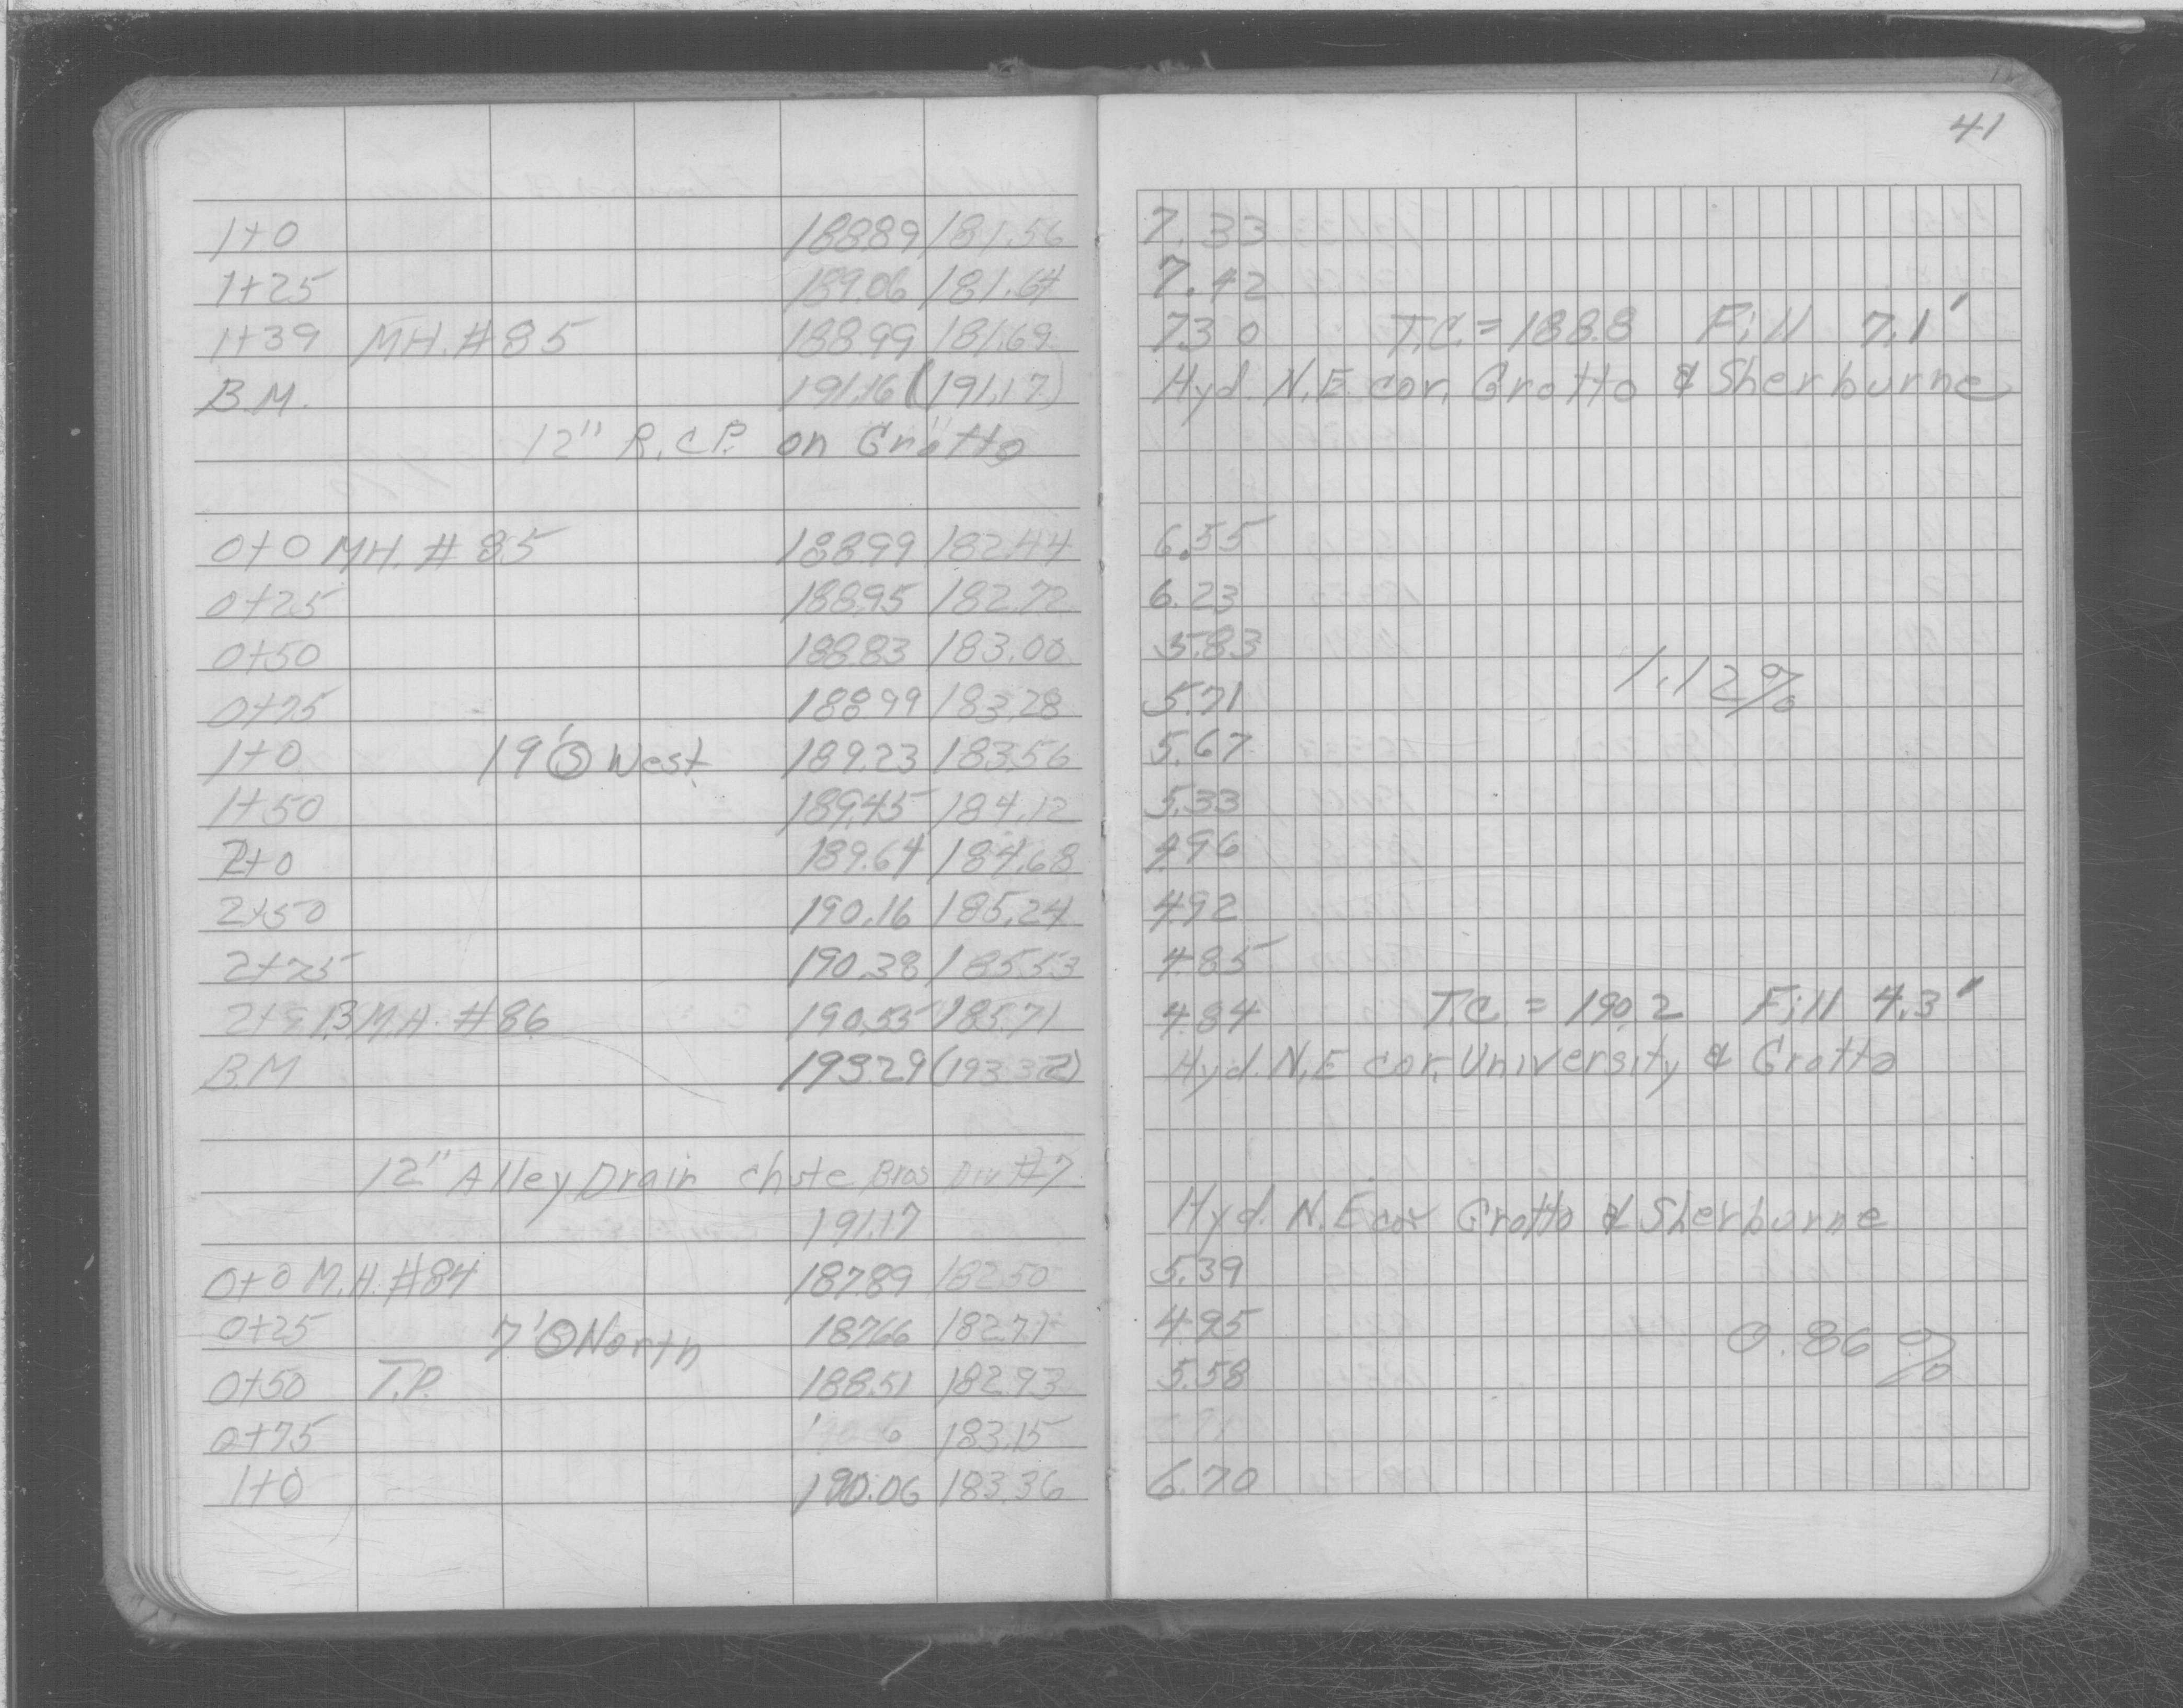 41
1+0 188.89 181.56 7.33
1+25 189.06 181.64 7.42
1+39 M.H. #85 188.99 181.69 7.30 T.C. = 188.8 Fill 7.1'
B.M. 191.16 (191.17) Hyd. N.E. cor. Grotto & Sherburne
12" R.C.P. on Grotto
0+0 M.H. #85 188.99 182.44 6.55
0+25 188.95 182.72 6.23
0+50 188.83 183.00 5.83
1.12%
0+75 188.99 183.28 5.71
1+0 19' Ⓢ West 189.23 183.56 5.67
1+50 189.45 184.12 5.33
2+0 189.64 184.68 4.96
2+50 190.16 185.24 4.92
2+75 190.38 185.53 4.85
M.H. #86 190.55 185.71 4.84 T.C. = 190.2 Fill 4.3'
B.M 193.29 (193.32) Hyd. N.E cor. University & Grotto
12" Alley Drain Chute Bros Div #7
191.17 Hyd. N.E cor Grotto & Sherburne
0+0 M.H. #84 187.89 182.50 5.39
0+25 7' Ⓢ North 187.66 182.71 4.95
0.86%
0+50 T.P. 188.51 182.93 5.58
0+75 183.15
1+0 190.06 183.36 6.70